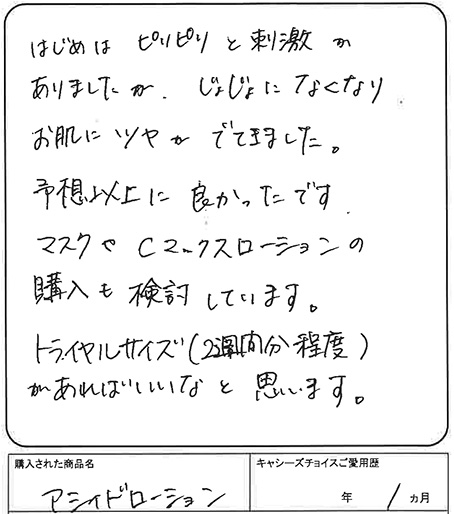 はじめは ピリピリと刺激が
ありましたが、じょじょになくなり
お肌にツヤがでてきました。
予想以上に良かったです
マスクや Cマックスローションの
購入も検討しています。
トライヤルサイズ(2週間分程度)
があればいいなと思います。
購入された商品名
キャシーズチョイスご愛用歴
アシィドローション
年 1ヵ月